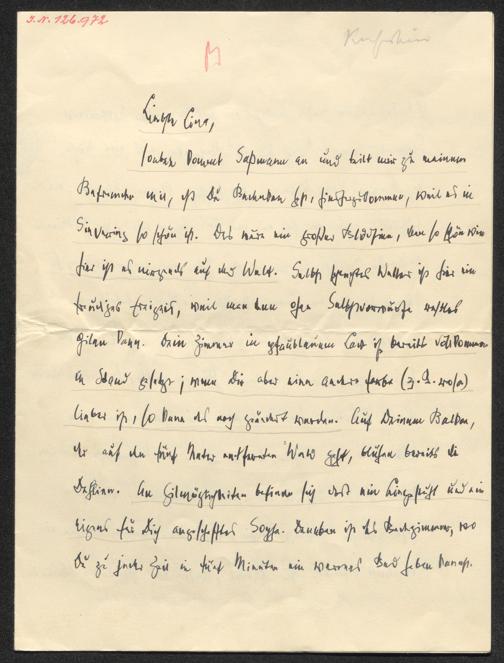 I.N. 126.972
Liebste Lina,
soeben kommt Saßmann an und teilt mir zu meinem
Befremden mit, daß Du Bedenken hast, hierherzukommen, weil es in
Sievering so schön ist. Das wäre ein großer , denn so schön wie
hier ist es nirgends auf der Welt. Selbst schlechtes Wetter ist hier ein
freudiges Ereignis, weil man dann ohne Selbstvorwürfe
kann. Dein Zimmer in Lack ist bereits vollkommen
in Stand gesetzt; wenn Dir aber eine andere Farbe (z. B. rosa)
lieber ist, so kann es noch geändert werden. Auf Deinem Balkon,
der auf den fünf Meter entfernten Wald geht, blühen bereits die
Dahlien. An befinden sich dort ein Liegestuhl und ein
eigens für Dich angeschafftes Sopha. Daneben ist das Badezimmer, wo
Du zu jeder Zeit in fünf Minuten ein warmes Bad haben kannst.